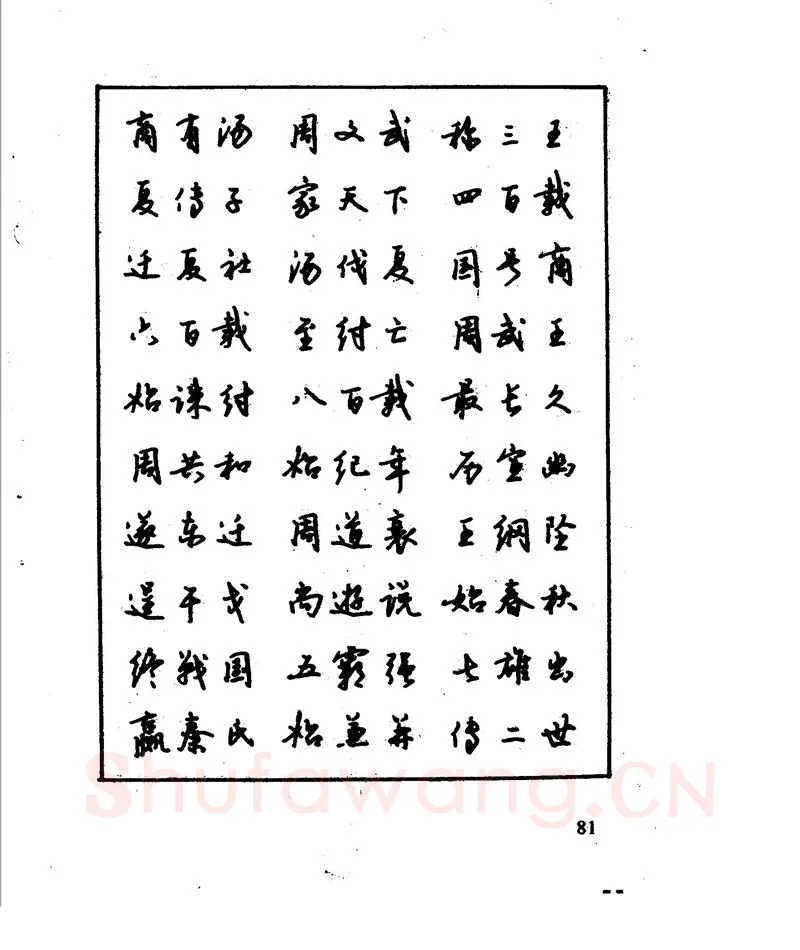 商有汤 周文武 称三王
夏传子 家天下 四百载
迁夏社 汤伐夏 国号商
六百载 至纣亡 周武王
始诛纣 八百载 最长久
周共和 始纪年 历宣幽
遂东迁 周道衰 王纲坠
逞干戈 尚遊说 始春秋
终战国 五霸强 七雄出
赢秦氏 始兼并 传二世
Shufawang.CN
81